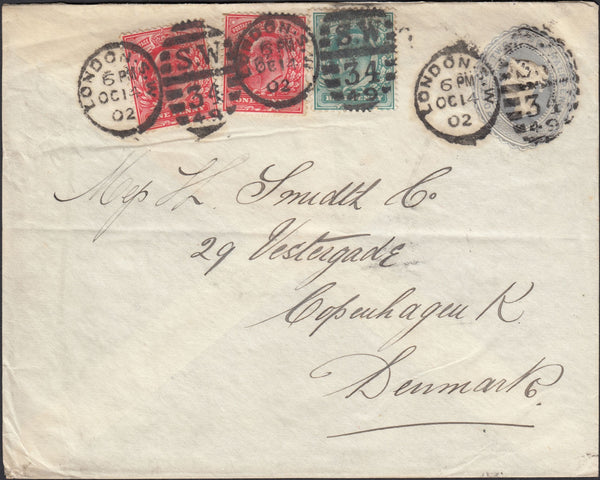 LONDON.S.W
6 PM
OC 14
02
S.W
34
49
LONDON.S.W
6 PM
OC 14
02
S.W
34
49
LONDON.S.W
6 PM
OC 14
02
34
49
Mess H. Smidth Co
29 Vestergade
Copenhagen K
Denmark